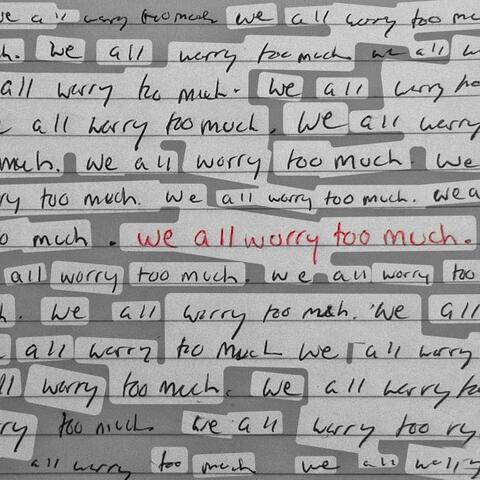 we all worry too much we all worry too mu
h. we all worry too much we all w
all worry too much. we all worry to
all worry too much. we all worry
much. we all worry too much. we
ry too much. we all worry too much. we a
o much. we all worry too much.
all worry too much. we all worry too
h. we all worry too much. we all
all worry too much we all worry
ll worry too much. we all worry to
ry too much. we all worry too ry
all worry too much we all worry